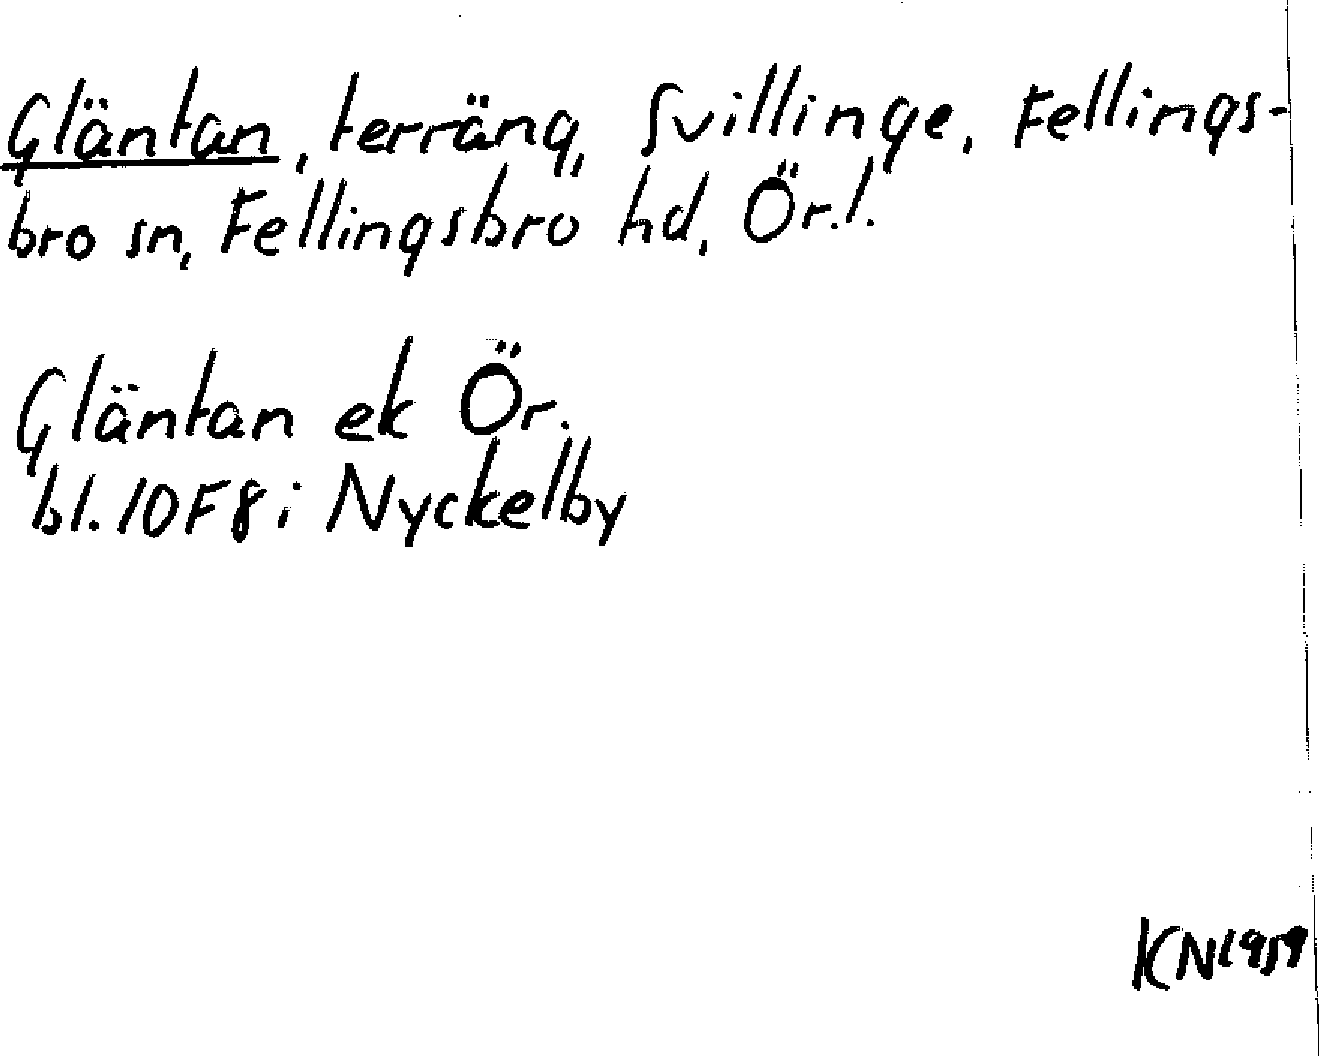 Gläntan, terräng, Svillinge, Fellings-
bro sn, Fellingsbro hd, Ör.l.
Gläntan ek Ör.
bl. 10F8i Nyckelby
KN 1959